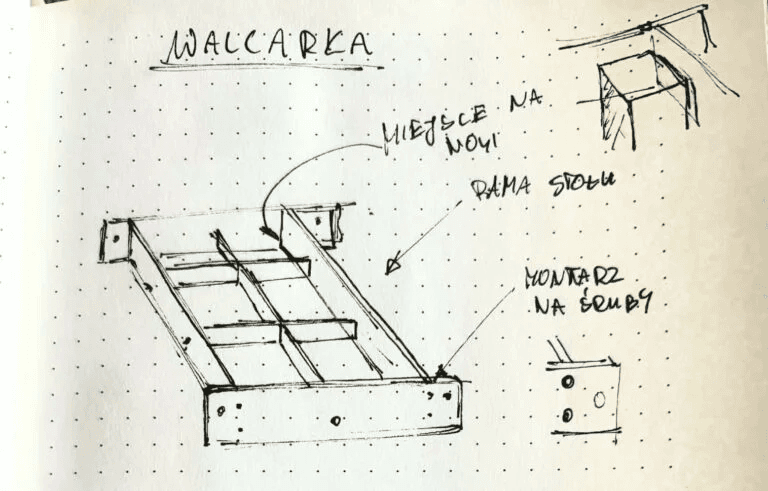 WALCARKA
MIEJSCE NA
NOGI
RAMA STOŁU
MONTARZ
NA ŚRUBY